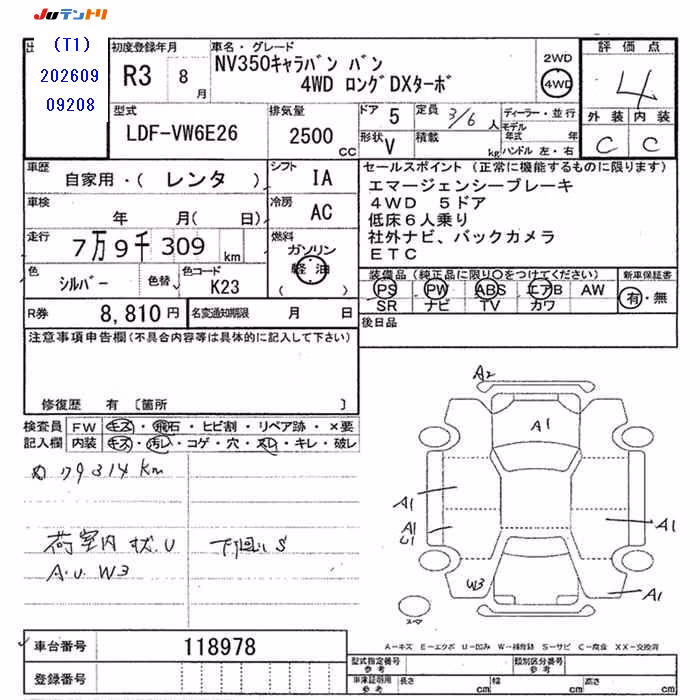 JUテントリ
(T1)
202609
09208
初度登録年月
R3 8月
車名・グレード
NV350キャラバン バン
4WD ロングDXターボ
2WD
4WD
評価点
4
外装 内装
C C
型式
LDF-VW6E26
排気量
2500 CC
ドア 5
形状 V
定員 3/6 人
積載 kg
ディーラー・並行
モデル年式 年
ハンドル 左・右
車歴
自家用・( レンタ )
シフト
IA
車検
年 月( 日)
冷房
AC
走行
7万9千309 km
燃料
ガソリン
軽油
( )
色
シルバー
色替
色コード
K23
セールスポイント (正常に機能するものに限ります)
エマージェンシーブレーキ
4WD 5ドア
低床6人乗り
社外ナビ、バックカメラ
ETC
装備品(純正品に限り○をつけてください)
PS PW ABS エアB AW
SR ナビ TV カワ
新車保証書
有・無
R券 8,810円
名変通知期限 月 日
後日品
注意事項申告欄(不具合内容等は具体的に記入して下さい)
修復歴 有 〔箇所 〕
検査員 FW キズ・飛石・ヒビ割・リペア跡・×要
記入欄 内装 キズ・汚レ・コゲ・穴・スレ・キレ・破レ
79314km
荷室内 状U
下回りS
A.U W3
A2
A1
A1
A1
U1
A1
W3
A1
スペア
A-キズ E-エクボ U-凹み W-補修跡 S-サビ C-腐食 XX-交換済
車台番号 118978
登録番号
型式指定番号 参考
類別区分番号 参考
車庫証明用 参考
長さ cm
幅 cm
高さ cm